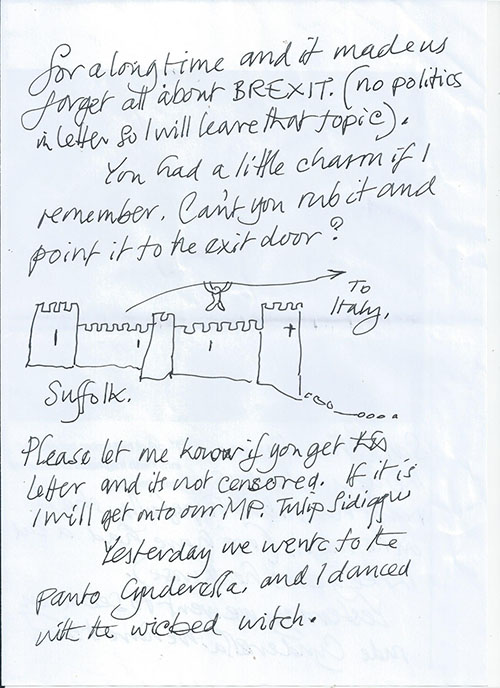 for a long time and it made us
forget all about BREXIT. (no politics
in letter so I will leave that topic).
You had a little charm if I
remember. Can't you rub it and
point it to the exit door?
To
Italy,
Suffolk.
Please let me know if you get this
letter and its not censored. If it is
I will get onto our MP. Tulip Sidiqqw
Yesterday we went to the
panto Cynderella, and I danced
with the wicked witch.